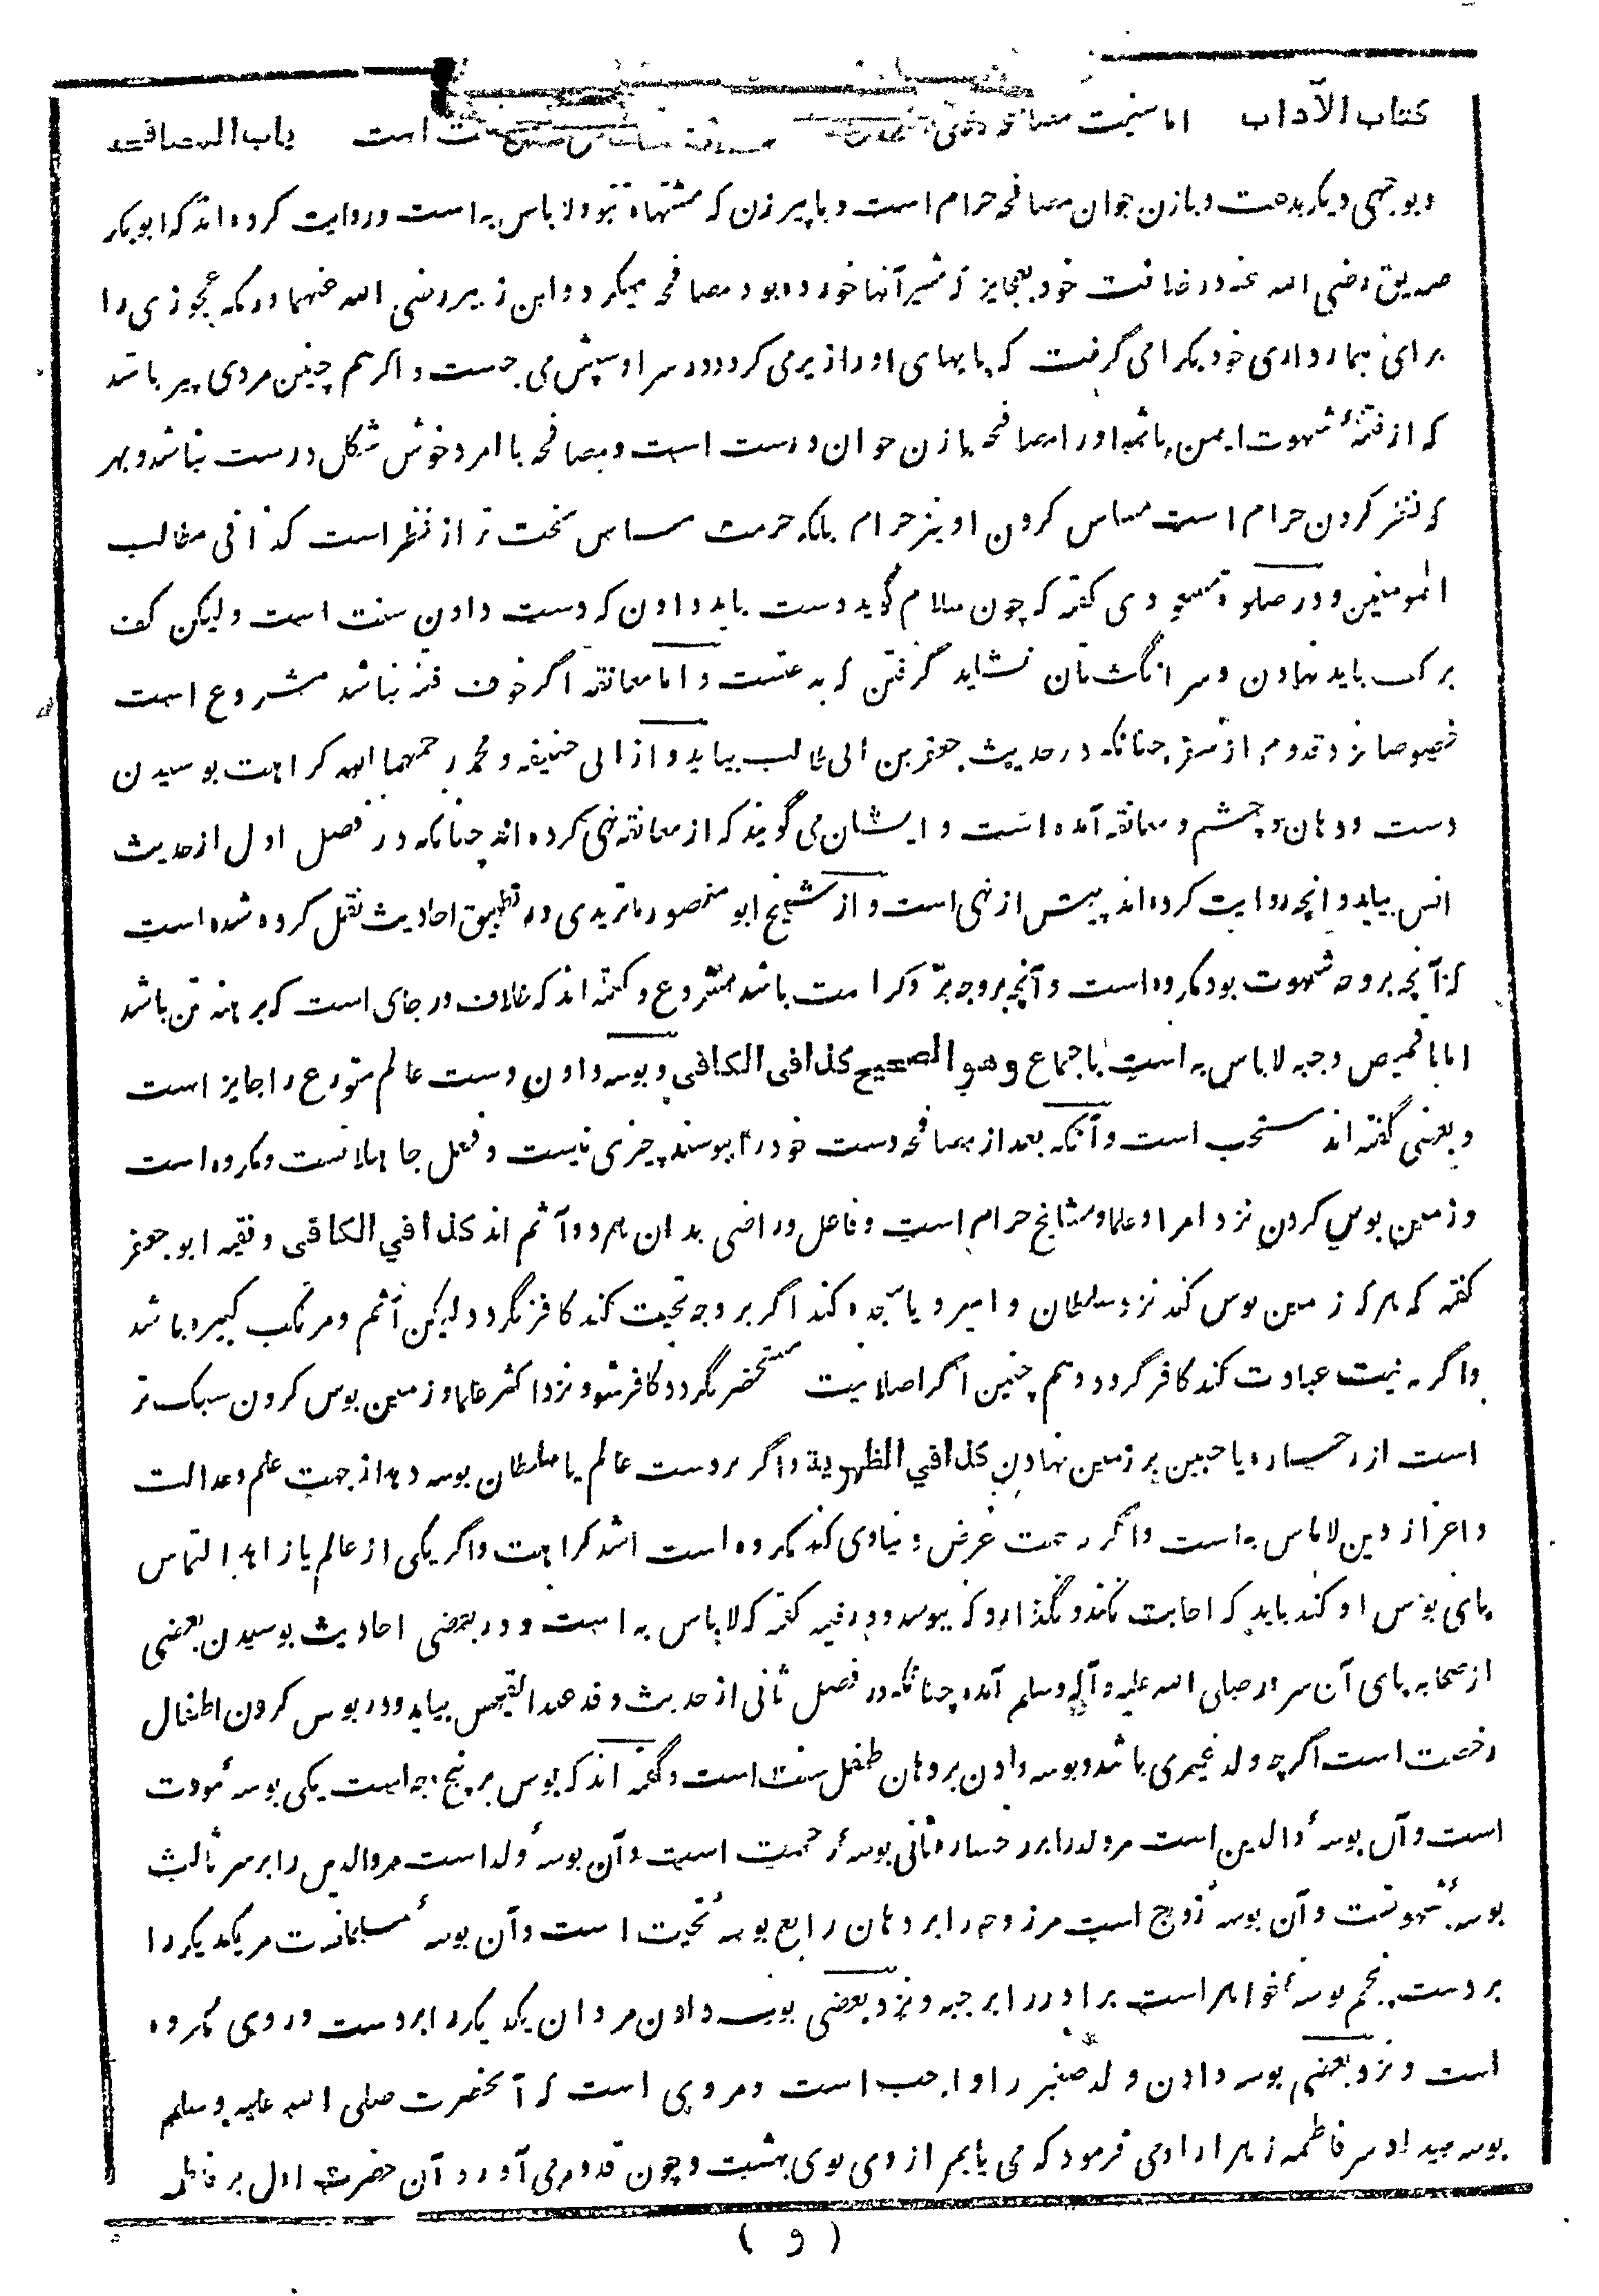 كتاب الآداب اما سنیت مصافحه است باب المصافحه
و بوجهی دیگر بدعت و با زن جوان مصافحه حرام است و با پیر زن که مشتهاة نبود لا باس به است و روایت کرده اند که ابو بکر
صدیق رضی الله عنه در خلافت خود بعجایز که شیر آنها خورده بود مصافحه میکرد و ابن زبیر رضی الله عنهما در مکه عجوزی را
برای بیمارداری خود بکرا می گرفت که پایهای او را زیر می کرد و در سر او سپش می جست و اگر هم چنین مردی پیر باشد
که از فتنهٔ شهوت ایمن باشد او را مصافحه با زن جوان درست است و مصافحه با امرد خوش شکل درست نباشد و بهر
که نظر کردن حرام است مساس کردن او نیز حرام بلکه حرمت مساس سخت تر از نظر است کذا فی مطالب
المومنین و در صلوة مسعودی گفته که چون سلام گوید دست باید دادن که دست دادن سنت است ولیکن کف
بر کف باید نهادن و سر انگشتان نشاید گرفتن که بدعتست و اما معانقه اگر خوف فتنه نباشد مشروع است
خصوصا نزد قدوم از سفر چنانکه در حدیث جعفر بن ابی طالب بیاید و از ابی حنیفه و محمد رحمهما الله کراهت بوسیدن
دست و دهان و چشم و معانقه آمده است و ایشان می گویند که از معانقه نهی کرده اند چنانکه در فصل اول از حدیث
انس بیاید و آنچه روایت کرده اند پیش از نهی است و از شیخ ابو منصور ماتریدی در تطبیق احادیث نقل کرده شده است
که آنچه بر وجه شهوت بود مکروه است و آنچه بر وجه برّ و کرامت باشد مشروع و گفته اند که خلاف در جای است که برهنه تن باشد
اما با قمیص و جبه لا باس به است باجماع وهو الصحیح کذا فی الکافی و بوسه دادن دست عالم متورع را جایز است
و بعضی گفته اند مستحب است و آنکه بعد از مصافحه دست خود را بوسند چیزی نیست و فعل جاهلانست و مکروه است
و زمین بوس کردن نزد امرا و علما و مشایخ حرام است و فاعل و راضی بدان هر دو آثم اند کذا فی الکافی و فقیه ابو جعفر
گفته که هر که زمین بوس کند نزد سلطان و امیر و یا سجده کند اگر بر وجه تحیت کند کافر نگردد ولیکن آثم و مرتکب کبیره باشد
و اگر به نیت عبادت کند کافر گردد و هم چنین اگر اصلا نیت مستحضر نگردد کافر شود نزد اکثر علما و زمین بوس کردن سبک تر
است از رخساره یا جبین بر زمین نهادن کذا فی الظهیریة و اگر بر دست عالم یا سلطان بوسه دهد از جهت علم و عدالت
و اعزاز دین لا باس به است و اگر به جهت غرض دنیاوی کند مکروه است اشد کراهت و اگر یکی از عالم یا زاهد التماس
پای بوس او کند باید که اجابت نکند و نگذارد که ببوسد و در قنیه گفته که لا باس به است و در بعضی احادیث بوسیدن بعضی
از صحابه پای آن سرور صلی الله علیه و آله وسلم آمده چنانکه در فصل ثانی از حدیث وفد عبد القیس بیاید و در بوس کردن اطفال
رخصت است اگرچه ولد غیری باشد و بوسه دادن بر دهان طفل سنت است و گفته اند که بوس بر پنج وجه است یکی بوسهٔ مودت
است و آن بوسهٔ والدین است مر ولد را بر رخساره ثانی بوسهٔ رحمت است و آن بوسهٔ ولد است مر والدین را بر سر ثالث
بوسهٔ شهوتست و آن بوسهٔ زوج است مر زوجه را بر دهان رابع بوسهٔ تحیت است و آن بوسهٔ مسلمانست مر یکدیگر را
بر دست پنجم بوسهٔ خواهر است برادر را بر جبهه و نزد بعضی بوسه دادن مردان یکدیگر را بر دست و روی مکروه
است و نزد بعضی بوسه دادن ولد صغیر را واجب است و مروی است که آنحضرت صلی الله علیه وسلم
بوسه میداد سر فاطمه زهرا را و می فرمود که می یابم از وی بوی بهشت و چون قدوم می آورد آن حضرت اول بر فاطمه
( و )